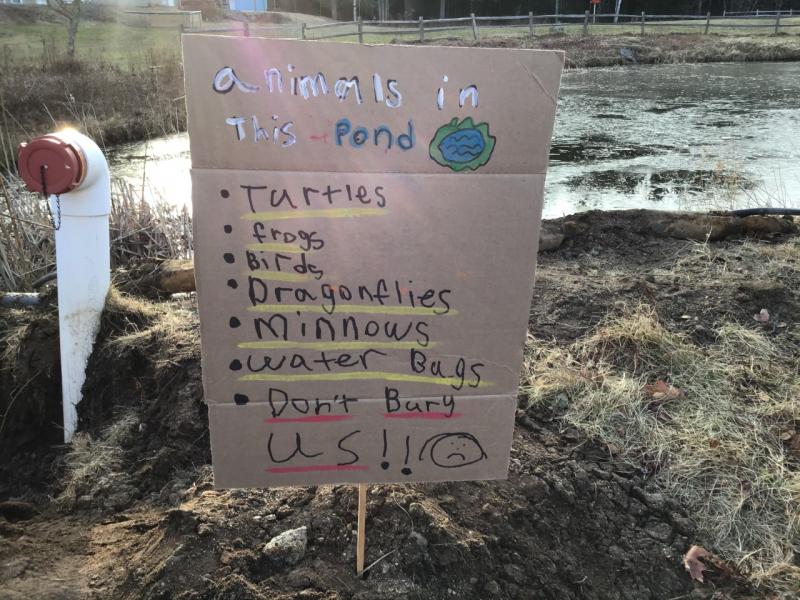 animals in
This Pond
• Turtles
• frogs
• Birds
• Dragonflies
• Minnows
• water Bugs
• Don't Bury
US!!